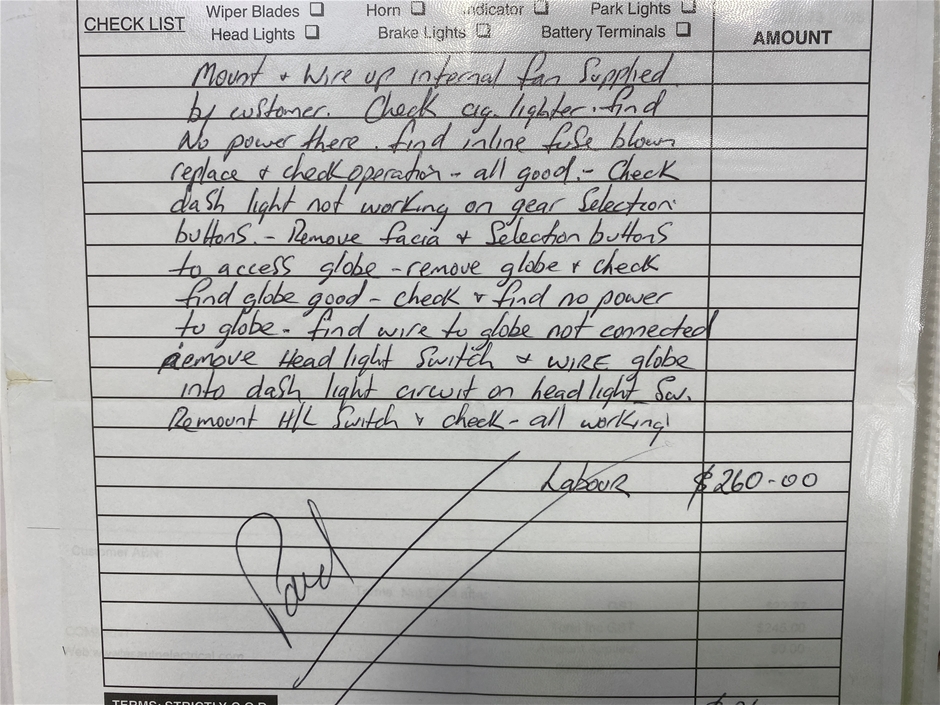 Wiper Blades Horn Indicator Park Lights
CHECK LIST Head Lights Brake Lights Battery Terminals AMOUNT
Mount & Wire up internal fan Supplied
by customer. Check cig. lighter. find
No power there. find inline fuse blown
replace & check operation - all good. - Check
dash light not working on gear Selection
buttons. - Remove facia & Selection buttons
to access globe - remove globe & check
find globe good - check & find no power
to globe - find wire to globe not connected
Remove Head light Switch & WIRE globe
into dash light circuit on headlight Sw.
Remount H/L Switch & check - all working!
Labour $260-00
Paid
Customer ABN:
TERMS: STRICTLY C.O.D.